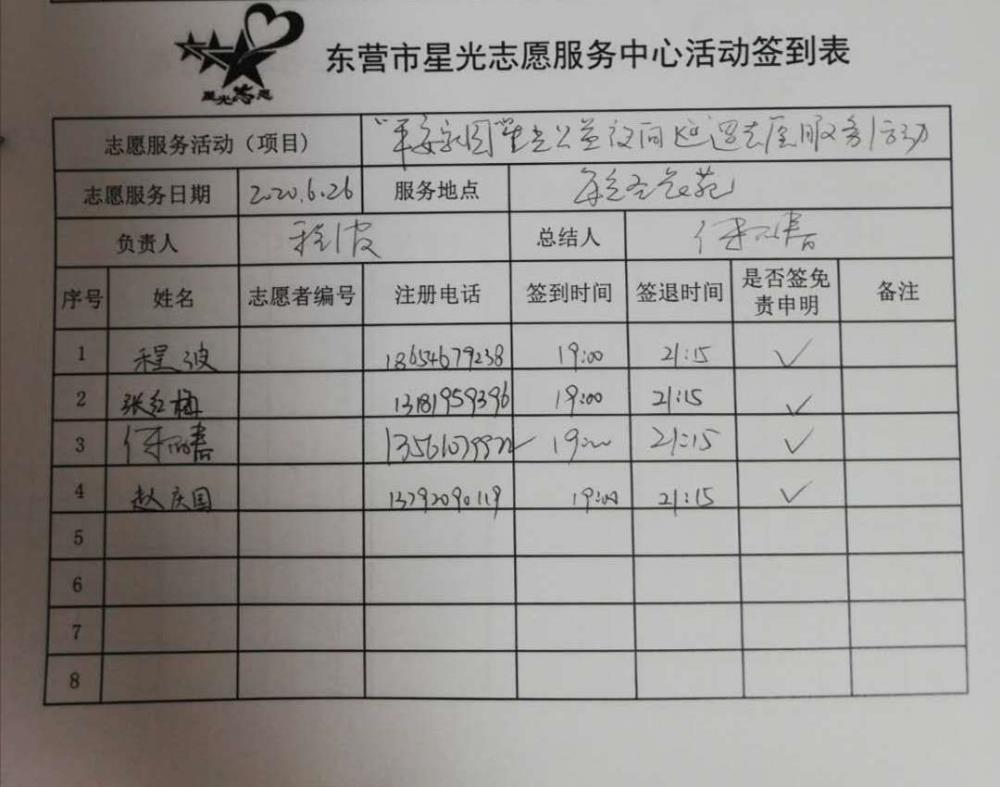 星光志愿
东营市星光志愿服务中心活动签到表
志愿服务活动（项目） “平安家园”星光公益夜间巡逻志愿服务活动
志愿服务日期 2020.6.26 服务地点
负责人 程波 总结人
序号 姓名 志愿者编号 注册电话 签到时间 签退时间 是否签免责申明 备注
1 程波 18654679238 19:00 21:15 ✓
2 张红梅 13181959396 19:00 21:15 ✓
3 19:00 21:15 ✓
4 赵庆国 13792090119 19:00 21:15 ✓
5
6
7
8